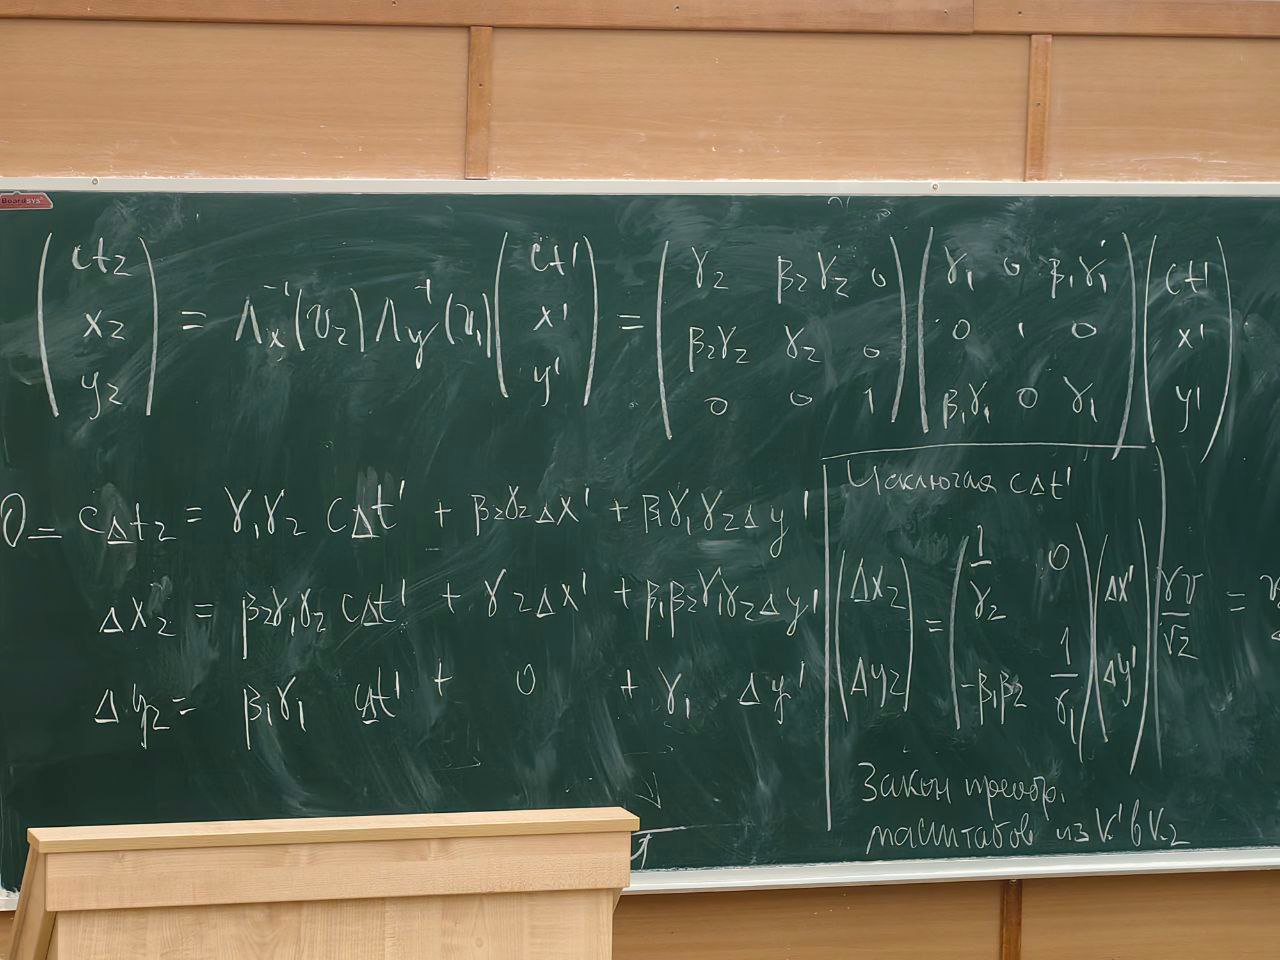 BoardSYS
(ct₂ x₂ y₂) = Λₓ⁻¹(v₂) Λᵧ⁻¹(v₁) (ct' x' y') = (γ₂ β₂γ₂ 0; β₂γ₂ γ₂ 0; 0 0 1) (γ₁ 0 β₁γ₁; 0 1 0; β₁γ₁ 0 γ₁) (ct' x' y')
0 = cΔt₂ = γ₁γ₂ cΔt' + β₂γ₂Δx' + β₁γ₁γ₂Δy'
Δx₂ = β₂γ₁γ₂ cΔt' + γ₂Δx' + β₁β₂γ₁γ₂Δy'
Δy₂ = β₁γ₁ cΔt' + 0 + γ₁ Δy'
Исключая cΔt'
(Δx₂ Δy₂) = (1/γ₂ 0; -β₁β₂ 1/γ₁) (Δx' Δy')
γv/√2 =
Закон преобр.
масштабов из K' в K₂